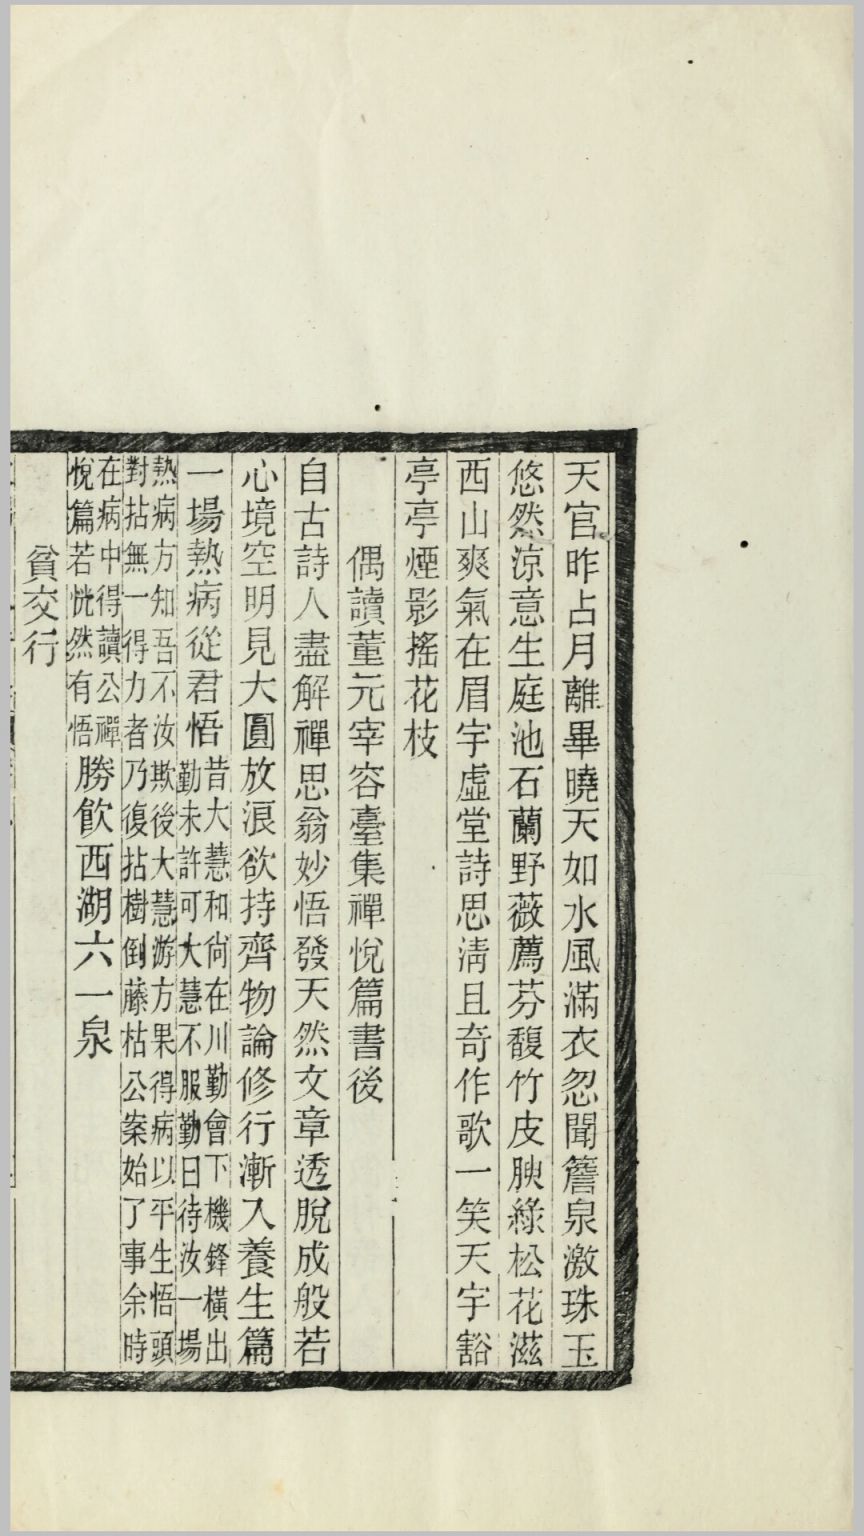 天官昨占月離畢曉天如水風滿衣忽聞簷泉激珠玉
悠然涼意生庭池石蘭野薇薦芬馥竹皮腴綠松花滋
西山爽氣在眉宇虛堂詩思淸且奇作歌一笑天宇豁
亭亭煙影搖花枝
偶讀董元宰容臺集禪悅篇書後
自古詩人盡解禪思翁妙悟發天然文章透脫成般若
心境空明見大圓放浪欲持齊物論修行漸入養生篇
一場熱病從君悟
昔大慧和尙在川勤會下機鋒橫出
勤未許可大慧不服勤曰待汝一場
熱病方知吾不汝欺後大慧游方果得病以平生悟頭
對拈無一得力者乃復拈樹倒藤枯公案始了事余時
在病中得讀公禪
悅篇若恍然有悟
勝飮西湖六一泉
貧交行